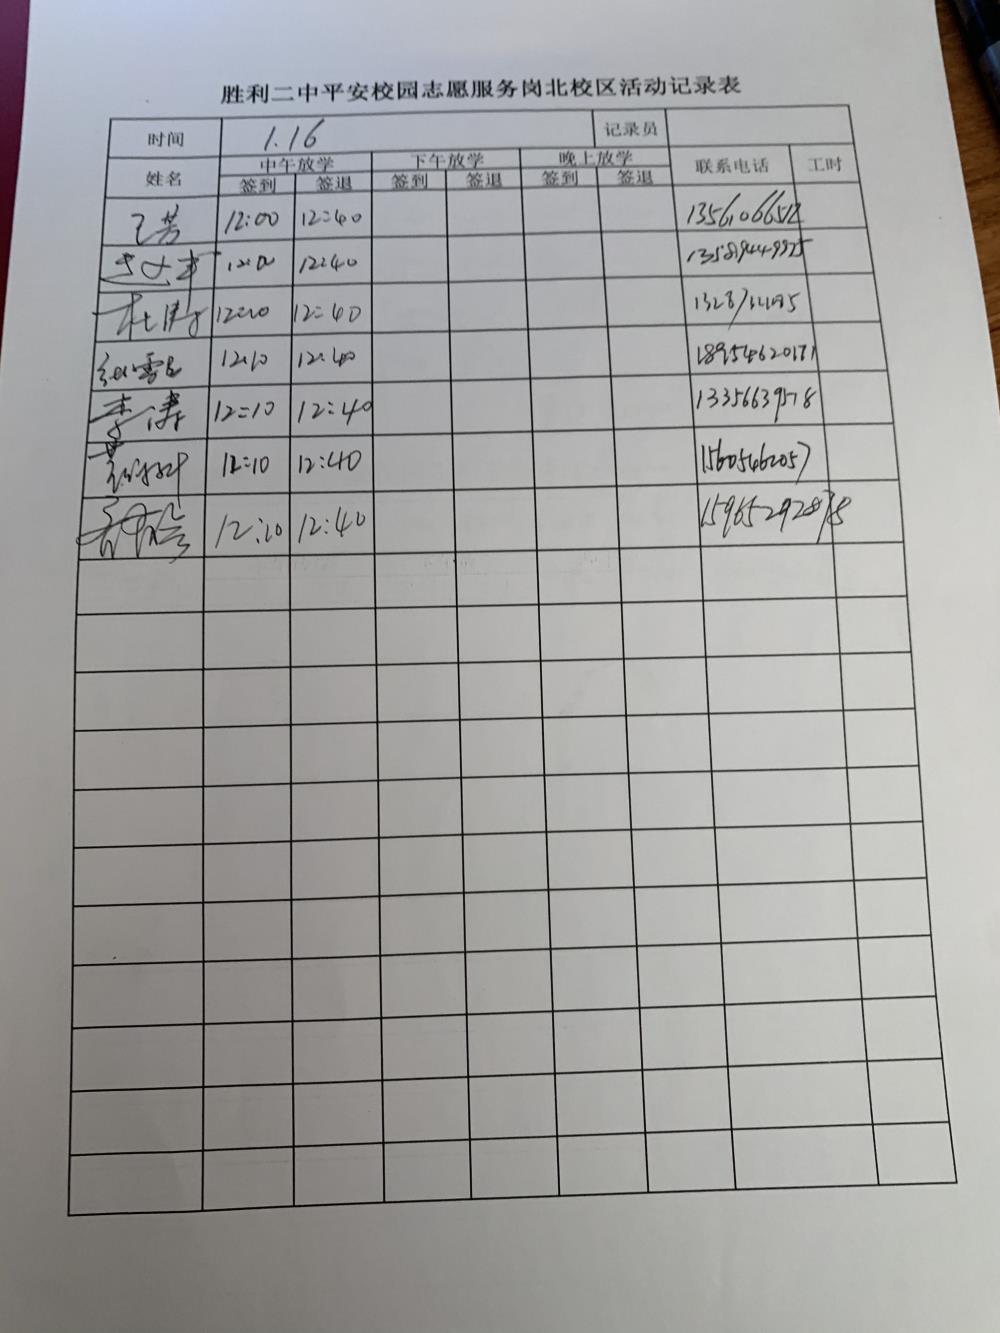 胜利二中平安校园志愿服务岗北校区活动记录表
时间 1.16 记录员
姓名 中午放学 下午放学 晚上放学 联系电话 工时
签到 签退 签到 签退 签到 签退
12:00 12:40
12:40
杜涛 12:10 12:40
12:10 12:40 18954620171
李涛 12:10 12:40 13356639578
12:10 12:40 15605462057
12:10 12:40 15965292878